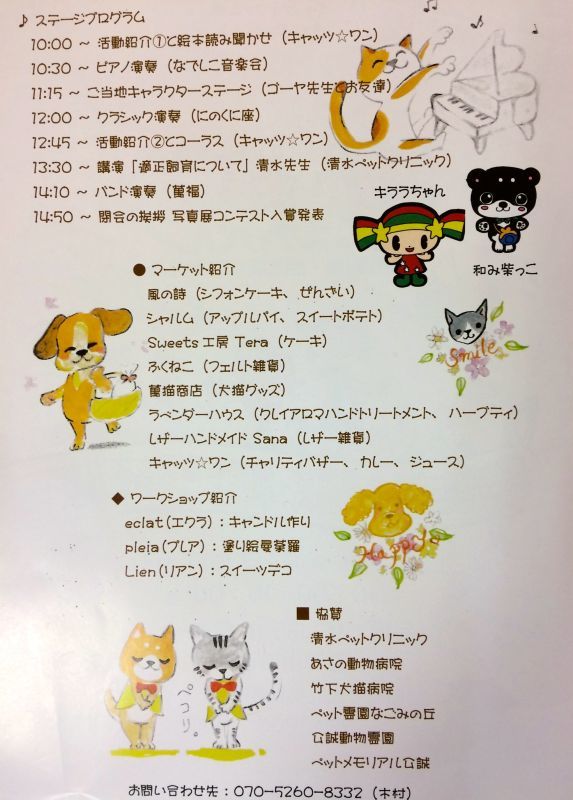 ♪ ステージプログラム
10:00 ~ 活動紹介①と絵本読み聞かせ (キャッツ☆ワン)
10:30 ~ ピアノ演奏 (なでしこ音楽会)
11:15 ~ ご当地キャラクターステージ (ゴーヤ先生とお友達)
12:00 ~ クラシック演奏 (にのくに座)
12:45 ~ 活動紹介②とコーラス (キャッツ☆ワン)
13:30 ~ 講演「適正飼育について」清水先生 (清水ペットクリニック)
14:10 ~ バンド演奏 (萬福)
14:50 ~ 閉会の挨拶 写真展コンテスト入賞発表
キララちゃん
和み柴っこ
● マーケット紹介
風の詩 (シフォンケーキ、ぜんざい)
シャルム (アップルパイ、スイートポテト)
Sweets工房 Tera (ケーキ)
ふくねこ (フェルト雑貨)
萬猫商店 (犬猫グッズ)
ラベンダーハウス (クレイアロマハンドトリートメント、ハーブティ)
レザーハンドメイド Sana (レザー雑貨)
キャッツ☆ワン (チャリティバザー、カレー、ジュース)
Smile
◆ ワークショップ紹介
eclat(エクラ) : キャンドル作り
pleia(プレア) : 塗り絵曼荼羅
Lien(リアン) : スイーツデコ
Happy
■ 協賛
清水ペットクリニック
あさの動物病院
竹下犬猫病院
ペット霊園なごみの丘
公誠動物霊園
ペットメモリアル公誠
ペコリ。
お問い合わせ先 : 070-5260-8332 (木村)